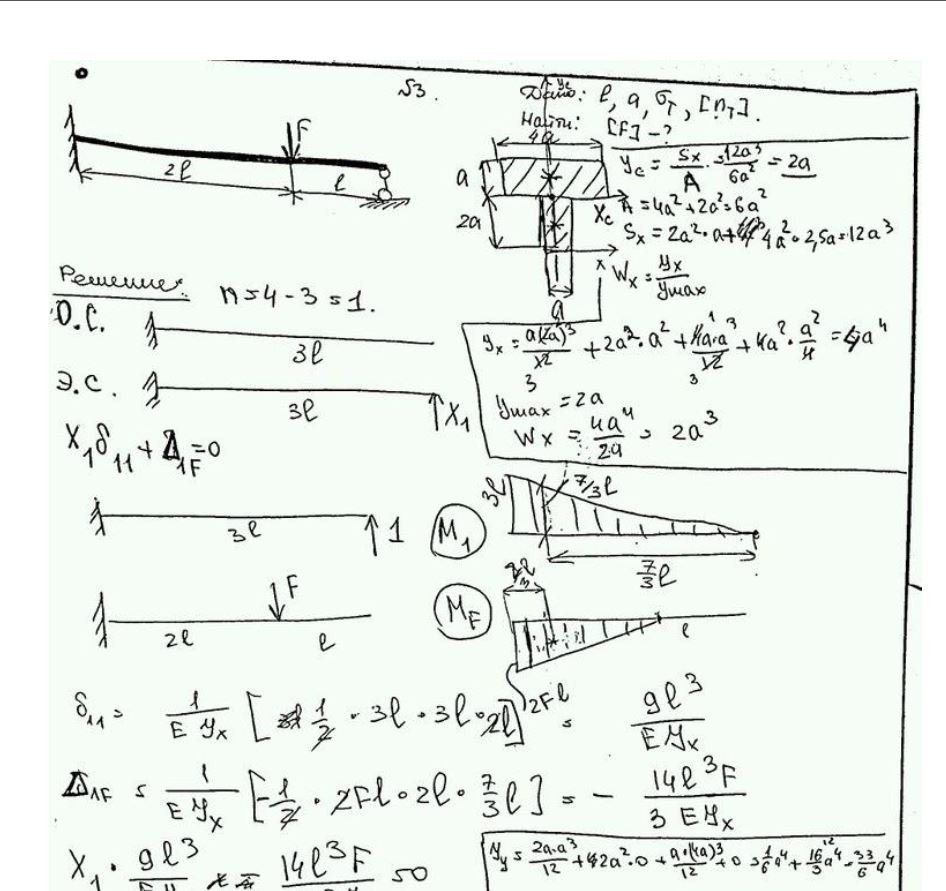 №3.
Дано: l, a, σт, [nт].
Найти: [F] - ?
F
2l
l
yc
4a
a
2a
xc
x
a
yc = Sx/A = 12a³/6a² = 2a
A = 4a² + 2a² = 6a²
Sx = 2a²·a + 4a²·2,5a = 12a³
Wx = Yx/ymax
Решение:
n = 4 - 3 = 1.
О.С.
3l
Э.С.
3l
X1
X1δ11 + Δ1F = 0
Yx = a(2a)³/12 + 2a²·a² + 4a·a³/12 + 4a²·a²/4 = 4a⁴
3
3
ymax = 2a
Wx = 4a⁴/2a = 2a³
3l
1
M1
3l
7/3 l
7/3 l
F
2l
l
MF
l
2Fl
δ11 = 1/EYx [1/2 · 3l · 3l · 2l] = 9l³/EYx
Δ1F = 1/EYx [-1/2 · 2Fl · 2l · 7/3 l] = - 14l³F/3EYx
X1 · 9l³ 14l³F = 0
Yy = 2a·a³/12 + 2a²·0 + a·(4a)³/12 + 0 = 1/6 a⁴ + 16/3 a⁴ = 33/6 a⁴